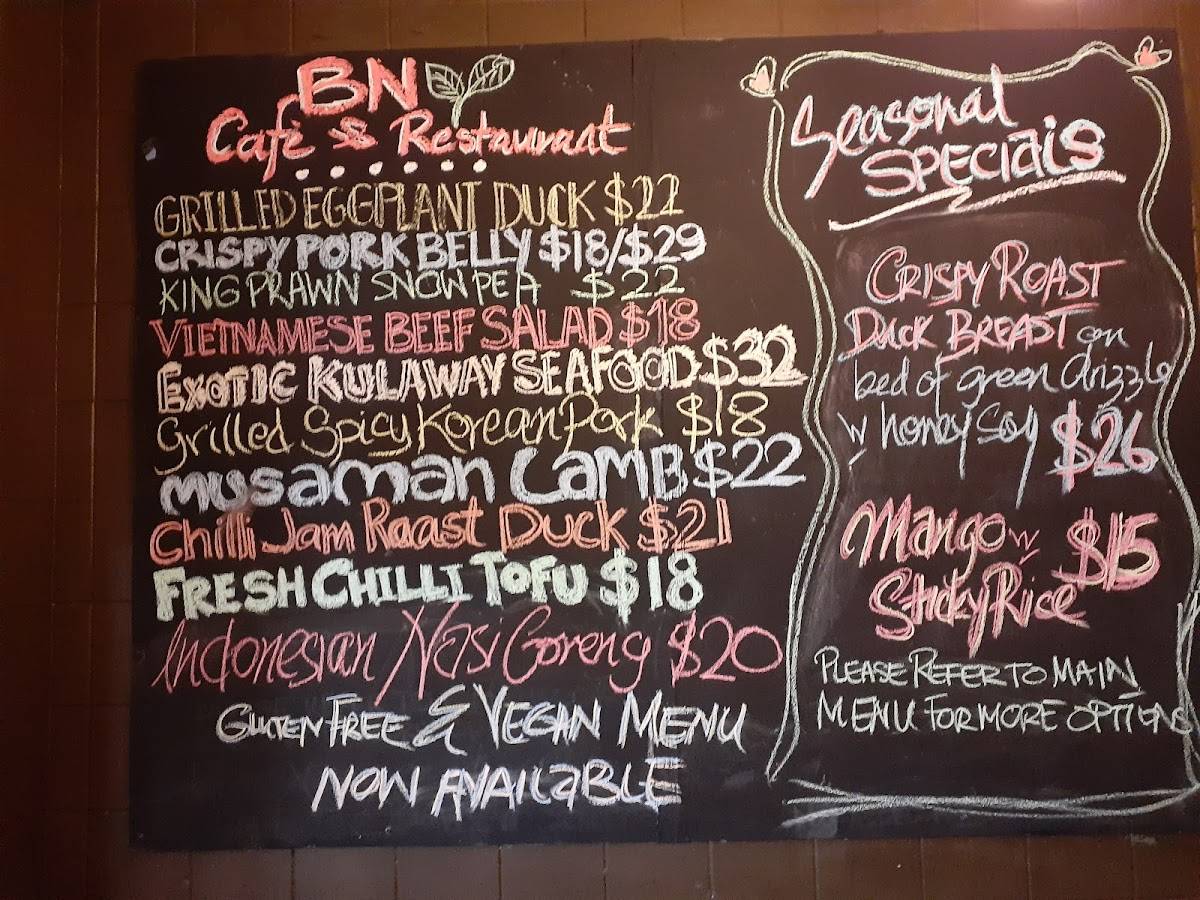 BN
Cafè & Restauraat
GRILLED EGGPLANT DUCK $22
CRISPY PORK BELLY $18/$29
KING PRAWN SNOW PEA $22
VIETNAMESE BEEF SALAD $18
EXOTIC KULAWAY SEAFOOD $32
Grilled Spicy Korean Pork $18
musaman LAMB $22
Chilli Jam Roast Duck $21
FRESH CHILLI TOFU $18
Indonesian Nasi Goreng $20
GLUTEN FREE & VEGAN MENU
NOW AVAILABLE
Seasonal
SPECIALS
CRISPY ROAST
DUCK BREAST on
bed of green drizzle
w honey soy $26
Mango w $15
Sticky Rice
PLEASE REFER TO MAIN
MENU FOR MORE OPTIONS